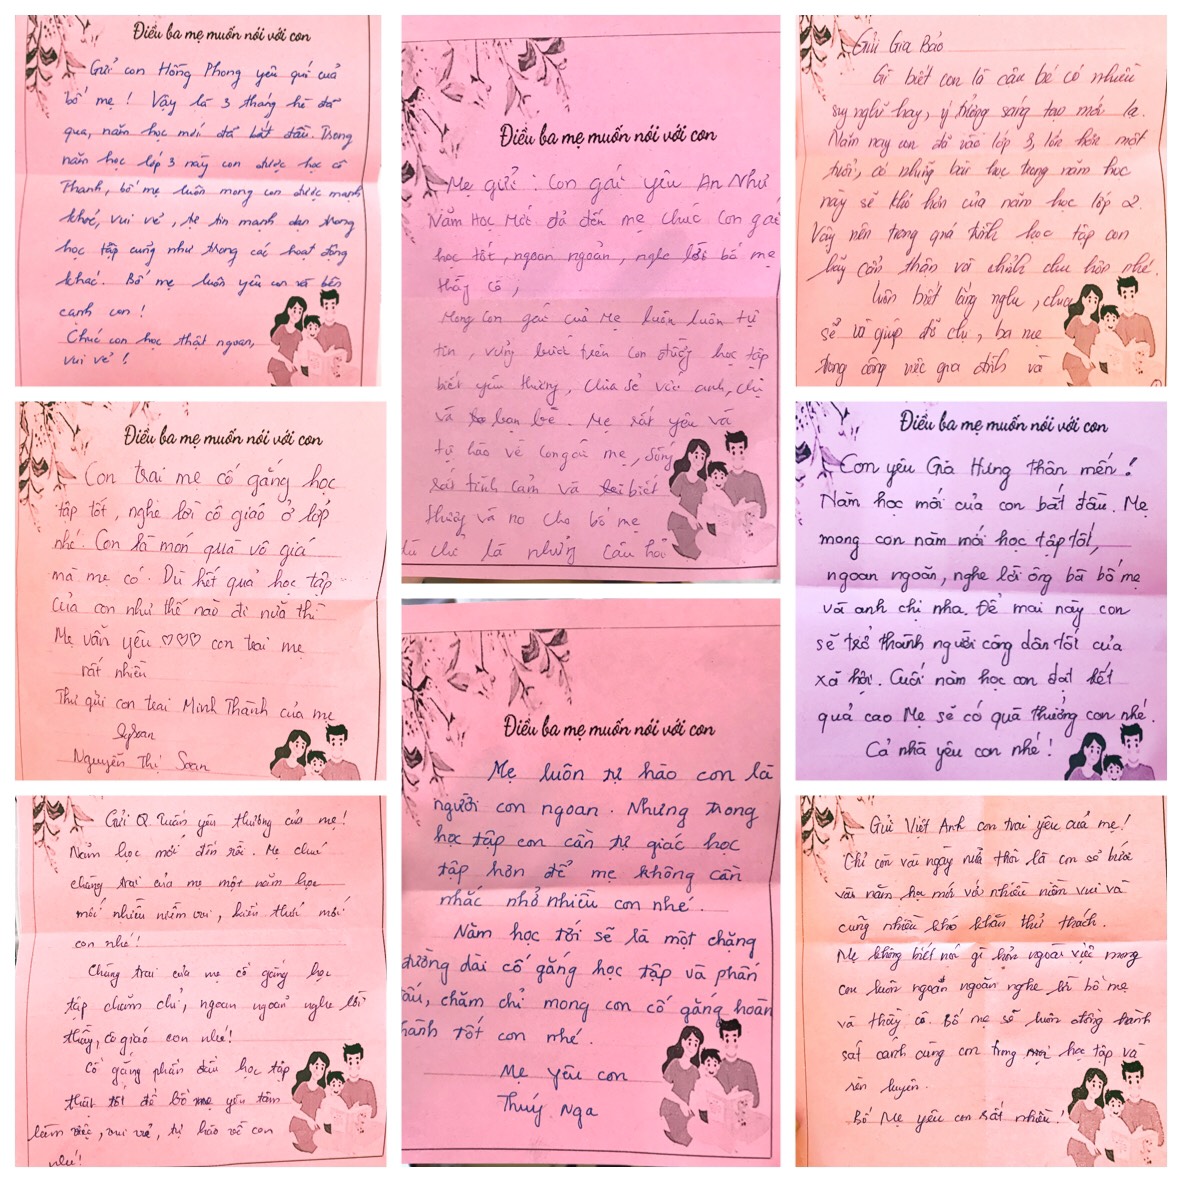 Điều ba mẹ muốn nói với con
Gửi con Hồng Phong yêu quí của
bố mẹ! Vậy là 3 tháng hè đã
qua, năm học mới đã bắt đầu. Trong
năm học lớp 3 này con được học cô
Thanh, bố mẹ luôn mong con được mạnh
khoẻ, vui vẻ, tự tin mạnh dạn trong
học tập cũng như trong các hoạt động
khác. Bố mẹ luôn yêu con và bên
cạnh con!
Chúc con học thật ngoan,
vui vẻ!
Điều ba mẹ muốn nói với con
Mẹ gửi: Con gái yêu An Như
Năm Học Mới đã đến mẹ chúc con gái
học tốt, ngoan ngoãn, nghe lời bố mẹ
thầy cô,
Mong con gái của mẹ luôn luôn tự
tin, vững bước trên con đường học tập
biết yêu thương, chia sẻ với anh, chị
và bạn bè. Mẹ rất yêu và
tự hào về con gái mẹ, sống
rất tình cảm và biết
thương và lo cho bố mẹ
dù chỉ là những câu hỏi
Gửi Gia Bảo
Gì biết con là cậu bé có nhiều
suy nghĩ hay, ý tưởng sáng tạo mới lạ.
Năm nay con đã vào lớp 3, lớn hơn một
tuổi, có những bài học trong năm học
này sẽ khó hơn của năm học lớp 2.
Vậy nên trong quá trình học tập con
hãy cẩn thận và chỉnh chu hơn nhé.
Luôn biết lắng nghe, chia
sẻ và giúp đỡ chị, ba mẹ
trong công việc gia đình và
Điều ba mẹ muốn nói với con
Con trai mẹ cố gắng học
tập tốt, nghe lời cô giáo ở lớp
nhé. Con là món quà vô giá
mà mẹ có. Dù kết quả học tập
của con như thế nào đi nữa thì
Mẹ vẫn yêu ♡♡♡ con trai mẹ
rất nhiều
Thư gửi con trai Minh Thành của mẹ
Soan
Nguyễn Thị Soan
Điều ba mẹ muốn nói với con
Con yêu Gia Hưng thân mến!
Năm học mới của con bắt đầu. Mẹ
mong con năm mới học tập tốt,
ngoan ngoãn, nghe lời ông bà bố mẹ
và anh chị nha. Để mai này con
sẽ trở thành người công dân tốt của
xã hội. Cuối năm học con đạt kết
quả cao Mẹ sẽ có quà thưởng con nhé.
Cả nhà yêu con nhé!
Điều ba mẹ muốn nói với con
Mẹ luôn tự hào con là
người con ngoan. Nhưng trong
học tập con cần tự giác học
tập hơn để mẹ không cần
nhắc nhở nhiều con nhé.
Năm học tới sẽ là một chặng
đường dài cố gắng học tập và phấn
đấu, chăm chỉ mong con cố gắng hoàn
thành tốt con nhé.
Mẹ yêu con
Thuý Nga
Gửi Q Tuấn yêu thương của mẹ!
Năm học mới đến rồi. Mẹ chúc
chàng trai của mẹ một năm học
mới nhiều niềm vui, kiến thức mới
con nhé!
Chàng trai của mẹ cố gắng học
tập chăm chỉ, ngoan ngoãn nghe lời
thầy, cô giáo con nhé!
Cố gắng phấn đấu học tập
thật tốt để bố mẹ yên tâm
làm việc, vui vẻ, tự hào về con
nhé!
Gửi Việt Anh con trai yêu của mẹ!
Chỉ còn vài ngày nữa thôi là con sẽ bước
vào năm học mới với nhiều niềm vui và
cũng nhiều khó khăn thử thách.
Mẹ không biết nói gì hơn ngoài việc mong
con luôn ngoan ngoãn nghe lời bố mẹ
và thầy cô. Bố mẹ sẽ luôn đồng hành
sát cánh cùng con trong mọi học tập và
rèn luyện.
Bố Mẹ yêu con rất nhiều!